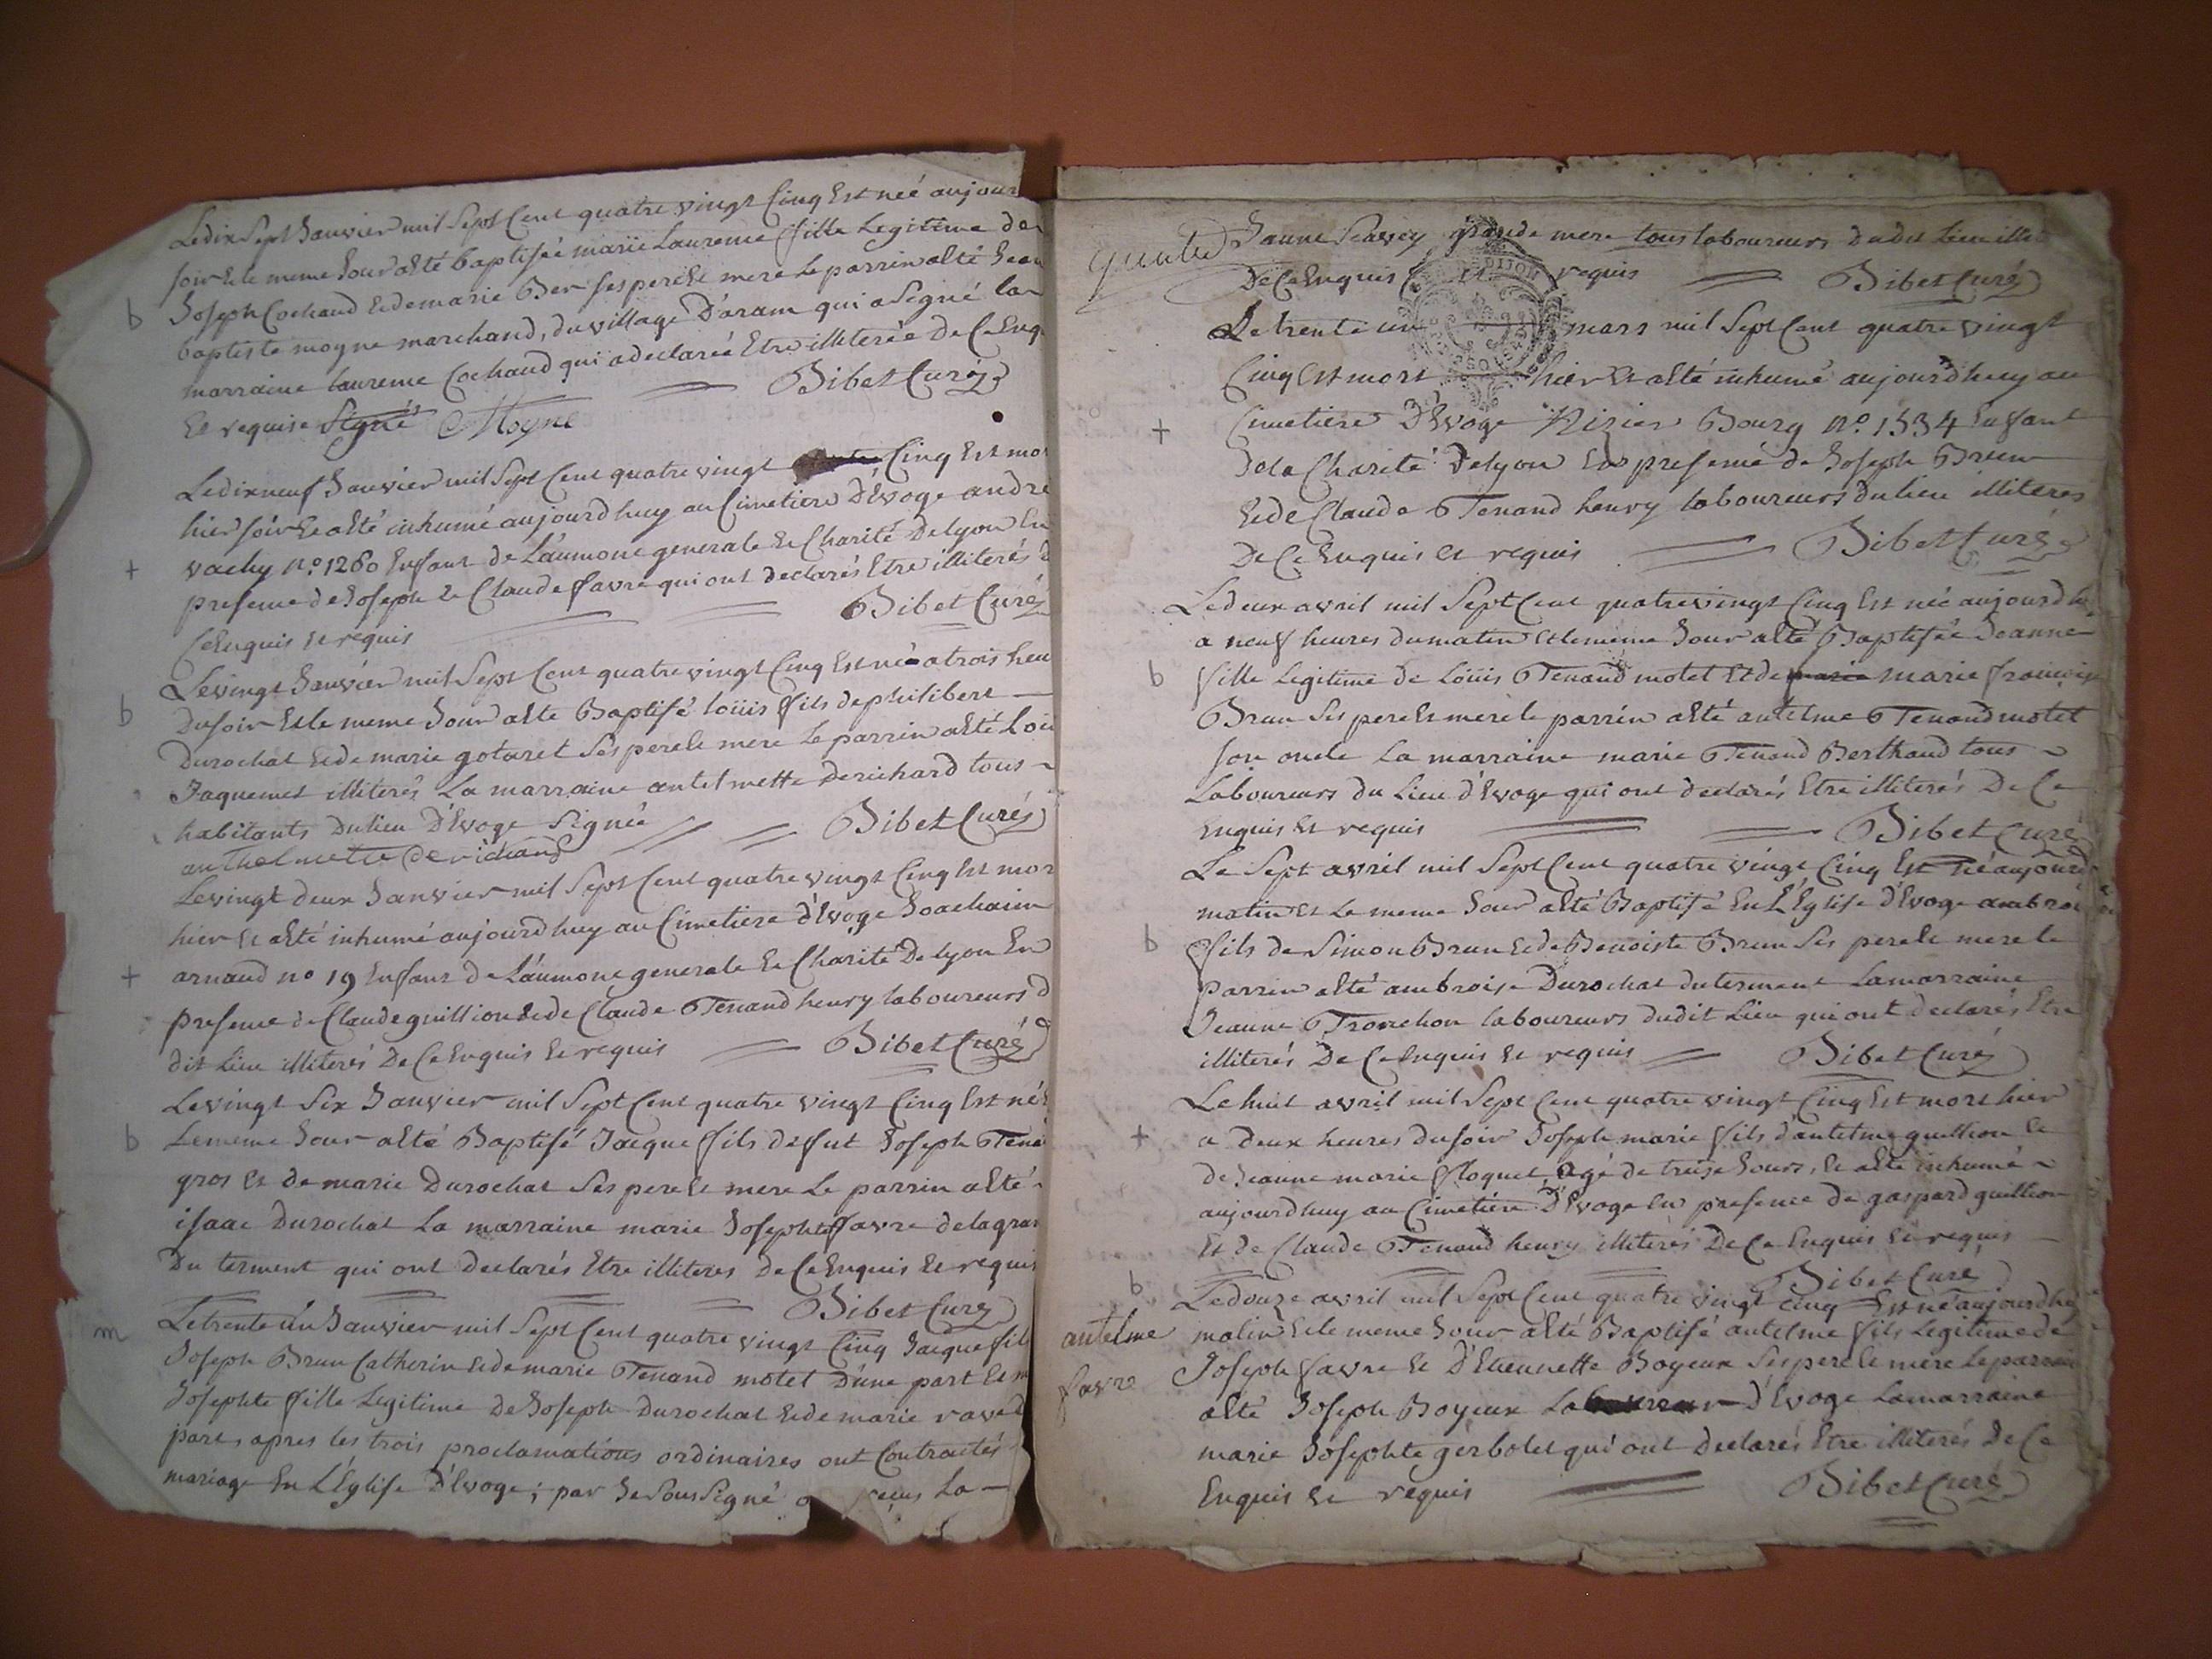 Ledix Sept Janvier mil Sept Cent quatre vingt Cinq Est neé aujour
soir & le meme Jour a Eté baptisée marie Laurence fille Legitime de
b Joseph Cochaud & de marie Ber ses pere & mere Le parrin a Eté Jean
baptiste moyne marchand, du village D'aram qui a Signé la
marraine laurence Cochaud qui a declareé Etre illiterée De Ce Enq
Et requise Signé Moyne Bibet Curé
Ledix neuf Janvier mil Sept Cent quatre vingt Cinq Est mo
hier soir & a Eté inhumé aujourdhuy au Cimetiere D'Evoge andré
+ vachy n.º 1260 Enfant de L'aumone generale & Charité Delyon En
presence de Joseph & Claude favre qui ont declarés Etre illiterés
Ce Enquis et requis Bibet Curé
Le vingt Janvier mil Sept Cent quatre vingt Cinq Est né a trois heu
b Du soir & le meme Jour a Eté Baptisé loüis fils de philibert
Durochat & de marie gotaret Ses pere & mere Le parrin a Eté Loü
Jaquemet illiterés La marraine antelmette derichard tous
habitants Du lieu D'Evoge Signée Bibet Curé
anthelmette derichard
Le vingt deux Janvier mil Sept Cent quatre vingt Cinq Est mor
hier & a Eté inhumé aujourdhuy au Cimetiere d'Evoge Joachaim
+ arnaud no 19 Enfant de L'aumone generale & Charité De lyon En
presence de Claude guillion & de Claude Tenand henry laboureurs d
dit Lieu illiterés De Ce Enquis & requis Bibet Curé
Le vingt Six Janvier mil Sept Cent quatre vingt Cinq Est né
b Le meme Jour a Eté Baptisé Jacque fils de fut Joseph Tena
gros Et de marie Durochat Ses pere & mere Le parrin a Eté
isaac Durochat La marraine marie Josephte favre dela gran
Du terment qui ont declarés Etre illiteres De Ce Enquis Et requis
Bibet Curé
m Le trente ún Janvier mil Sept Cent quatre vingt Cinq Jacque fils
Joseph Brun Catherin & de marie Tenand motet D'une part Et m
Josephte fille Legitime De Joseph Durochat & de marie ravet d
part, apres les trois proclamations ordinaires ont Contractés
mariage En L'Église D'Evoge; par Je Sous Signé reçus La
Janne grande mere tous laboureurs du dit Lieu illit
De Ce Enquis Et requis Bibet Curé
Le trente un mars mil Sept Cent quatre vingt
Cinq Est mort hier Et a Eté inhumé aujourdhuy au
+ Cimetiere D'Evoge Nizier Bourg n.º 1534 Enfant
De la Charité Delyon En presence de Joseph Brun
& de Claude Tenand henry laboureurs du lieu illiteres
De Ce Enquis Et requis Bibet Curé
Le deux avril mil Sept Cent quatre vingt Cinq Est neé aujourdhu
a neuf heures du matin Et le meme Jour a Eté Baptisée Jeanne
b fille Legitime de Loüis Tenand motet Et de marie francoise
Brun Ses pere Et mere le parrin a Eté antelme Tenand motet
son oncle La marraine marie Tenand Berthaud tous
Laboureurs du Lieu d'Evoge qui ont declarés Etre illiterés De Ce
Enquis Et requis Bibet Curé
Le Sept avril mil Sept Cent quatre vingt Cinq Est né aujourd
matin Et Le meme Jour a Eté Baptisé En L'Église d'Evoge ambroi
b fils de Simon Brun & de Benoiste Brun Ses pere & mere le
parrin a Eté ambroise Durochat du terment La marraine
Jeanne Tronchon laboureurs dudit Lieu qui ont declarés Etre
illiterés De Ce Enquis & requis Bibet Curé
Le huit avril mil Sept Cent quatre vingt Cinq Est mort hier
+ a Deux heures du soir Joseph marie fils d'antelme guillion &
de Jeanne marie floquet, agé de treise Jours, & a Eté inhumé
aujourdhuy au Cimetiére D'Evoge En presence de gaspard guillion
Et de Claude Tenand henry illiterés De Ce Enquis & requis
Bibet Curé
b Le douze avril mil Sept Cent quatre vingt Cinq Est né aujourdhu
antelme matin & le meme Jour a Eté Baptisé antelme fils Legitime de
favre Joseph favre & D'Etiennette Boyeux Ses pere & mere Le parrain
a Eté Joseph Boyeux d'Evoge La marraine
marie Josephte gerbolet qui ont declarés Etre illiterés De Ce
Enquis & requis Bibet Curé